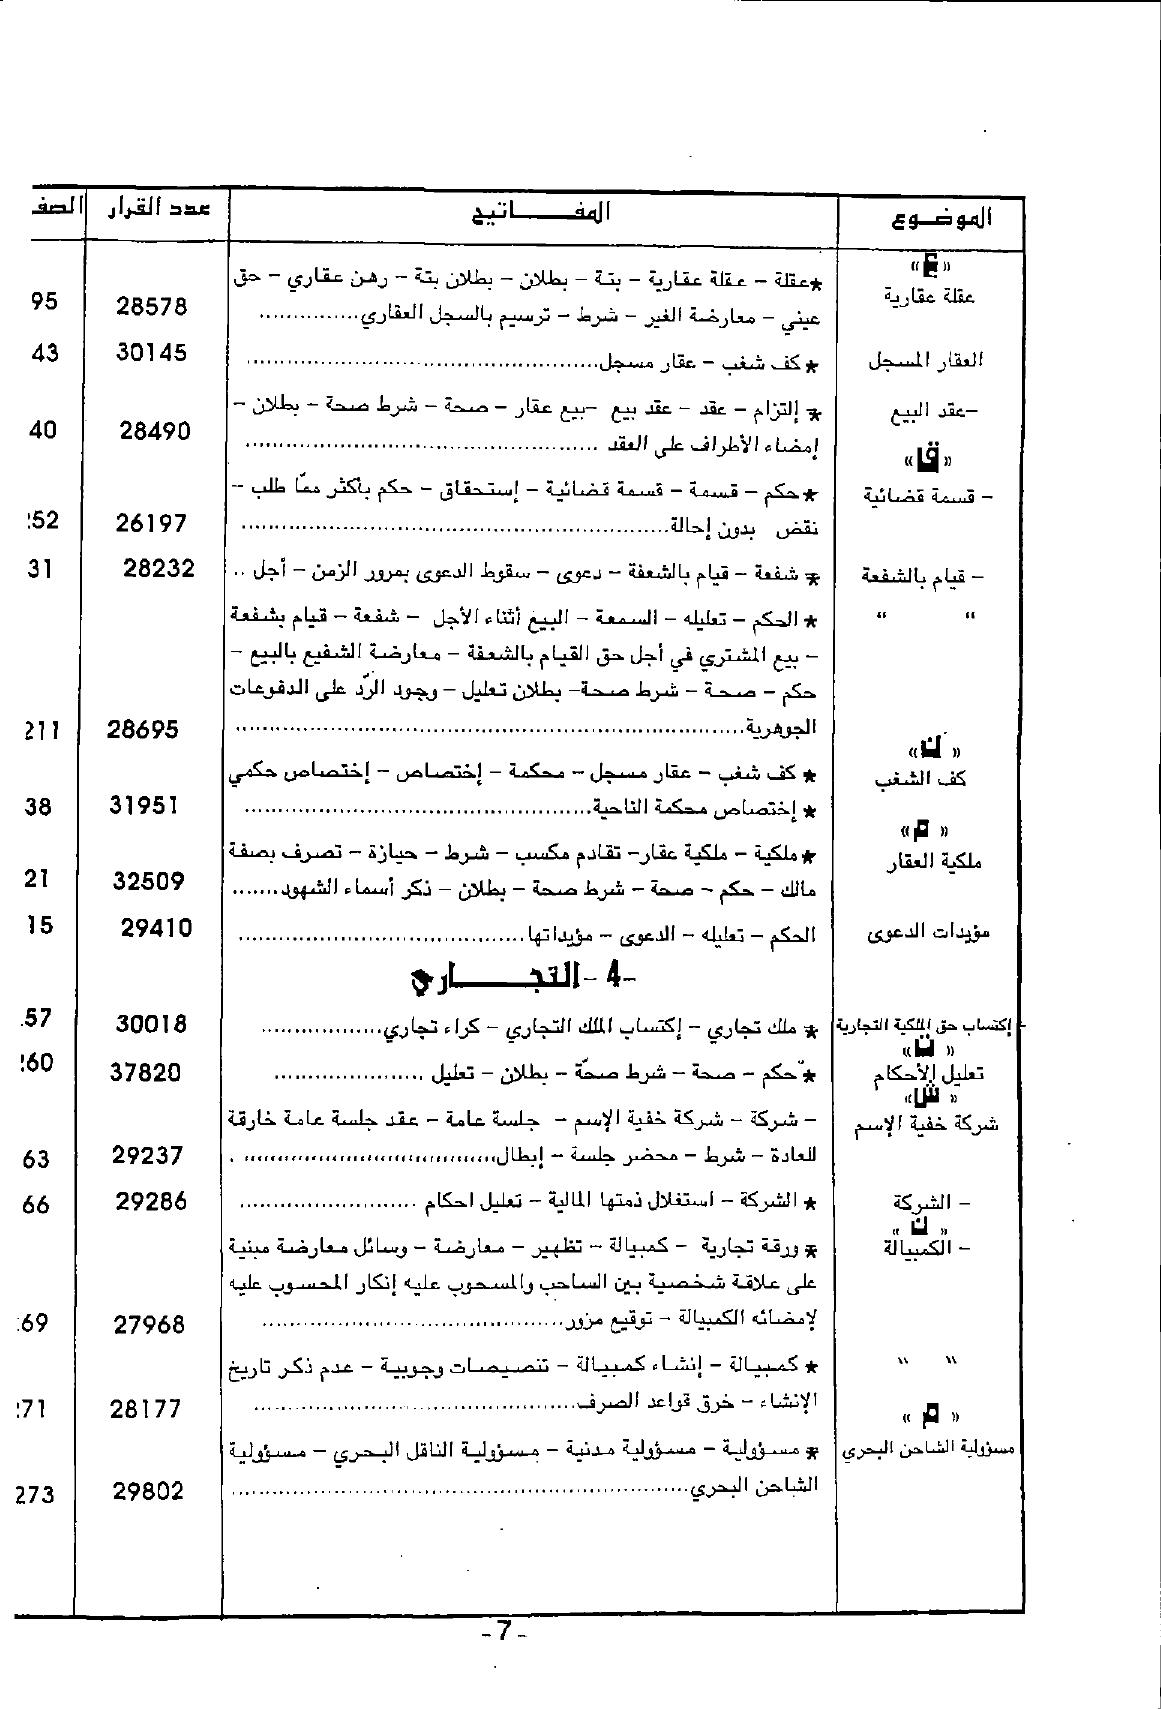 الموضوع المفاتيح عدد القرار الصف
«ع»
عقلة عقارية ★عقلة – عقلة عقارية – بتة – بطلان – بطلان بتة – رهن عقاري – حق
عيني – معارضة الغير – شرط – ترسيم بالسجل العقاري............... 28578 95
العقار المسجل ★ كف شغب – عقار مسجل............... 30145 43
–عقد البيع ★ إلتزام – عقد – عقد بيع –بيع عقار – صحة – شرط صحة – بطلان –
إمضاء الأطراف على العقد ............... 28490 40
«قا»
– قسمة قضائية ★حكم – قسمة – قسمة قضائية – إستحقاق – حكم بأكثر ممّا طلب –
نقض بدون إحالة............... 26197 52
– قيام بالشفعة ★ شفعة – قيام بالشعفة – دعوى – سقوط الدعوى بمرور الزمن – أجل .. 28232 31
“ “ ★ الحكم – تعليله – السمعة – البيع أثناء الأجل – شفعة – قيام بشفعة
– بيع المشتري في أجل حق القيام بالشعفة – معارضة الشفيع بالبيع –
حكم – صحة – شرط صحة– بطلان تعليل – وجود الرّد على الدفوعات
الجوهرية............... 28695 211
«ك»
كف الشغب ★ كف شغب – عقار مسجل – محكمة – إختصاص – إختصاص حكمي
★ إختصاص محكمة الناحية............... 31951 38
«م»
ملكية العقار ★ملكية – ملكية عقار– تقادم مكسب – شرط – حيازة – تصرف بصفة
مالك – حكم – صحة – شرط صحة – بطلان – ذكر أسماء الشهود....... 32509 21
مؤيدات الدعوى الحكم – تعليله – الدعوى – مؤيداتها............... 29410 15
-4- التجاري
– إكتساب حق الملكية التجارية ★ ملك تجاري – إكتساب الملك التجاري – كراء تجاري............... 30018 57
«ت»
تعليل الأحكام ★ حكم – صحة – شرط صحّة – بطلان – تعليل ............... 37820 60
«ش»
شركة خفية الإسم – شركة – شركة خفية الإسم – جلسة عامة – عقد جلسة عامة خارقة
للعادة – شرط – محضر جلسة – إبطال............... 29237 63
– الشركة ★ الشركة – استغلال ذمتها المالية – تعليل احكام ............... 29286 66
«ك»
– الكمبيالة ★ ورقة تجارية – كمبيالة – تظهير – معارضة – وسائل معارضة مبنية
على علاقة شخصية بين الساحب والمسحوب عليه إنكار المحسوب عليه
لامضائه الكمبيالة – توقيع مزور............... 27968 69
“ “ ★ كمبيالة – إنشاء كمبيالة – تنصيصات وجوبية – عدم ذكر تاريخ
الإنشاء – خرق قواعد الصرف............... 28177 71
«م»
مسؤولية الشاحن البحري ★ مسؤولية – مسؤولية مدنية – مسؤولية الناقل البحري – مسؤولية
الشاحن البحري............... 29802 273
-7-